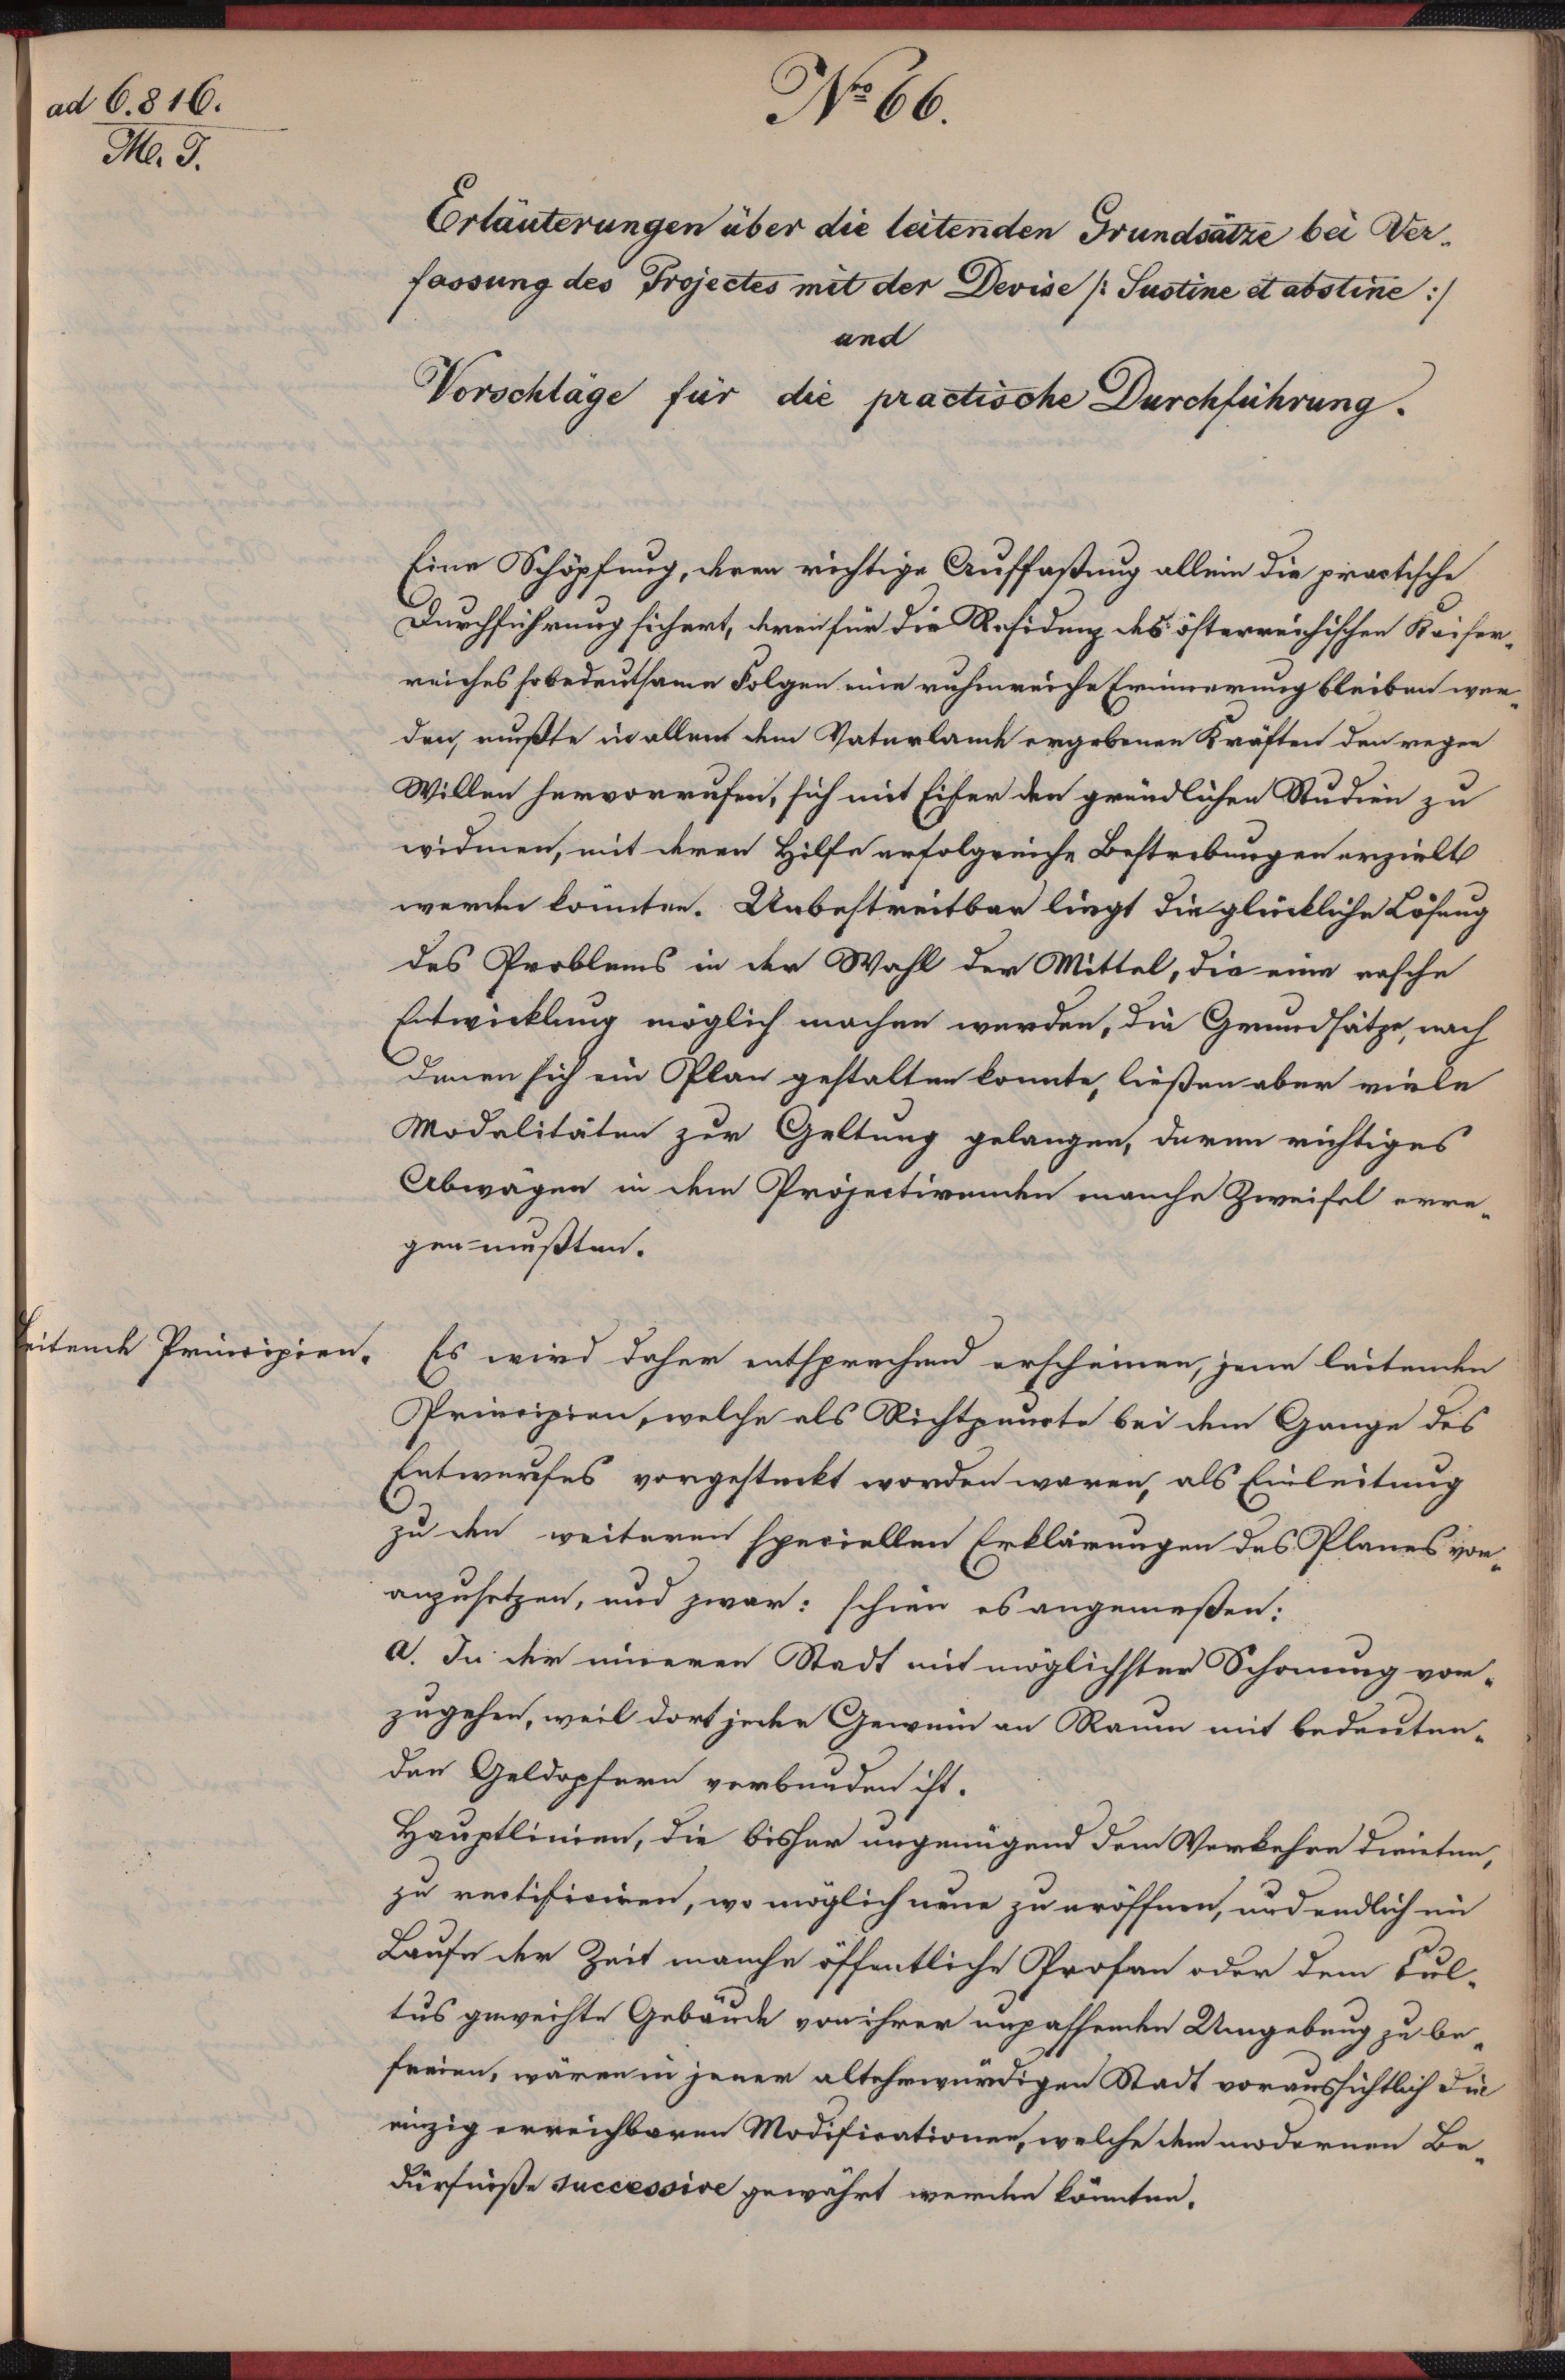 ad 6.816.
M. I.
Nro 66.
Erläuterungen über die leitenden Grundsätze bei Ver-
fassung des Projectes mit der Devise /: Sustine et abstine :/
und
Vorschläge für die practische Durchführung.
Eine Schöpfung, deren richtige Auffaßung allein die practische
Durchführung sichert, deren für die Residenz des österreichischen Kaiser-
reiches so bedeutsame Folgen eine ruhmreiche Erinnerung bleiben wer-
den, mußte in allen dem Vaterlande ergebenen Kräften den regen
Willen hervorrufen, sich mit Eifer den gründlichen Studien zu
widmen, mit deren Hilfe erfolgreiche Bestrebungen erzielt
werden könnten. Unbestreitbar liegt die glückliche Lösung
des Problems in der Wahl der Mittel, die eine rasche
Entwicklung möglich machen werden, die Grundsätze, nach
denen sich ein Plan gestalten konnte, ließen aber viele
Modalitäten zur Geltung gelangen, deren richtiges
Abwägen in dem Projectirenden manche Zweifel erre-
gen mußten.
Leitende Principien.
Es wird daher entsprechend erscheinen, jene leitenden
Principien, welche als Richtpuncte bei dem Gange des
Entwurfes vorgesteckt worden waren, als Einleitung
zu den weiteren speciellen Erklärungen des Planes vor-
anzusetzen, und zwar: schien es angemeßen:
a. In der inneren Stadt mit möglichster Schonung vor-
zugehen, weil dort jeder Gewinn an Raum mit bedeuten-
den Geldopfern verbunden ist.
Hauptlinien, die bisher ungenügend dem Verkehre dienten,
zu rectificiren, wo möglich neue zu eröffnen, und endlich im
Laufe der Zeit manche öffentliche Profan oder dem Cul-
tus geweihte Gebäude von ihrer unpassenden Umgebung zu be-
freien, wären in jener altehrwürdigen Stadt voraussichtlich die
einzig erreichbaren Modificationen, welche dem modernen Be-
dürfniße successive gewährt werden könnten.